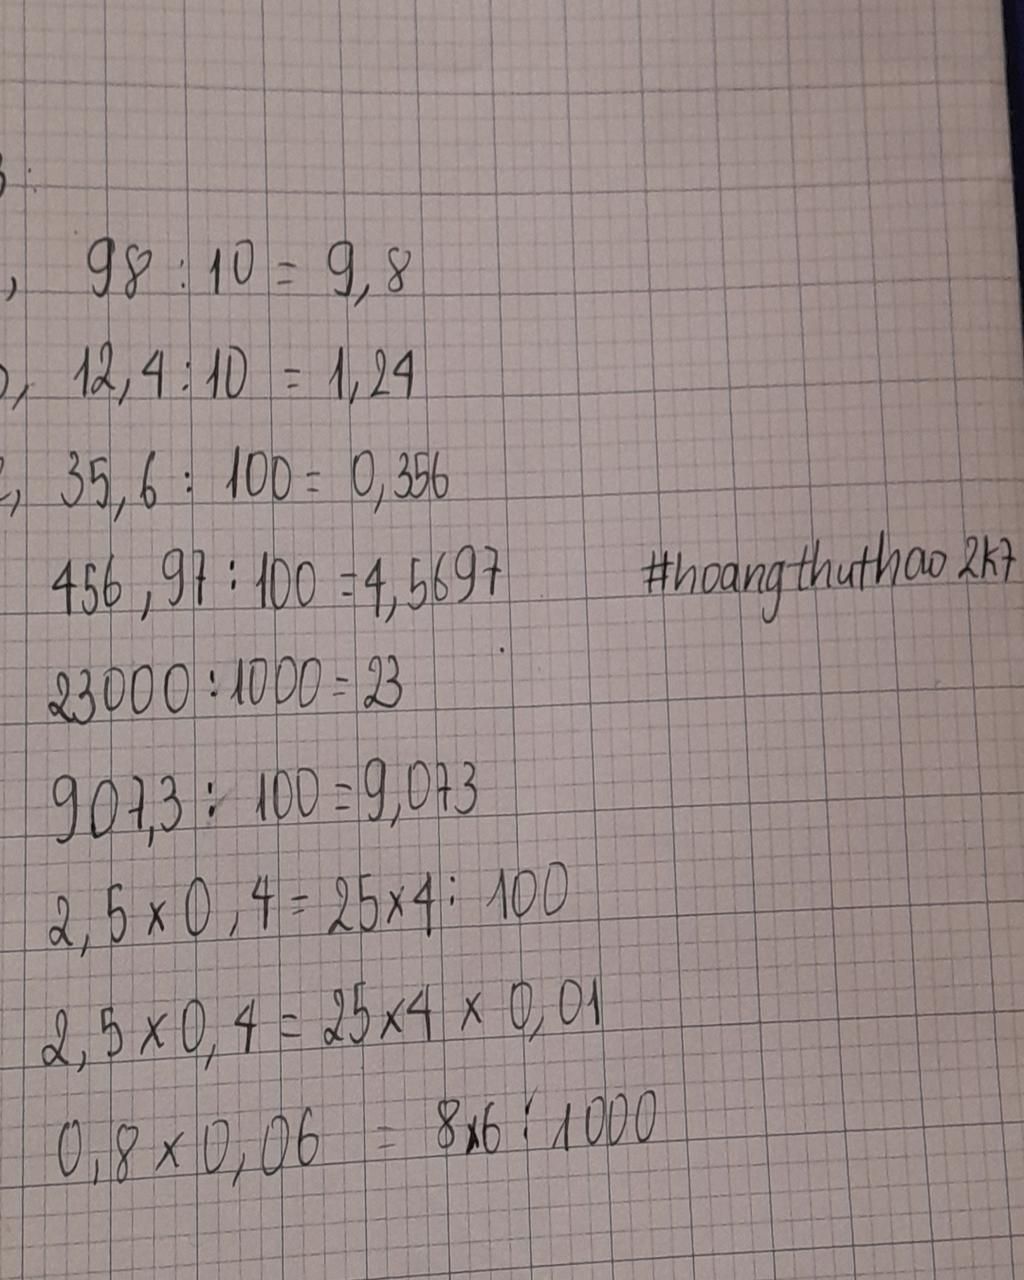 98 : 10 = 9,8
12,4 : 10 = 1,24
35,6 : 100 = 0,356
456,97 : 100 = 4,5697 #hoangthuthao2k7
23000 : 1000 = 23
907,3 : 100 = 9,073
2,5 x 0,4 = 25 x 4 : 100
2,5 x 0,4 = 25 x 4 x 0,01
0,8 x 0,06 = 8 x 6 : 1000